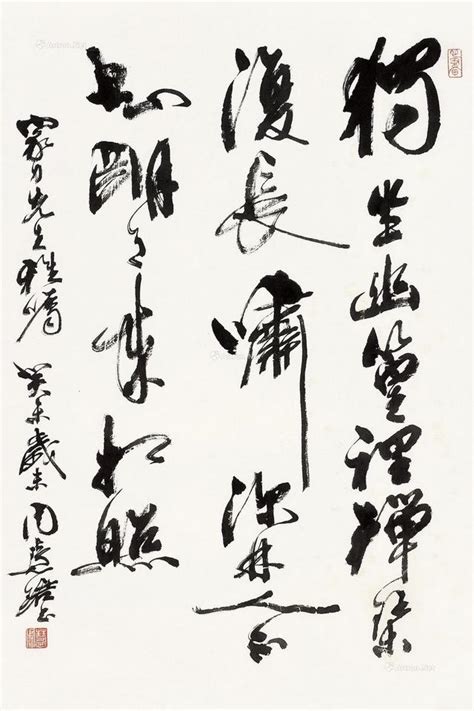 獨坐幽篁裡彈琴
復長嘯深林人不
知明月來相照
家力先生雅囑 癸未歲末 周慧珺書